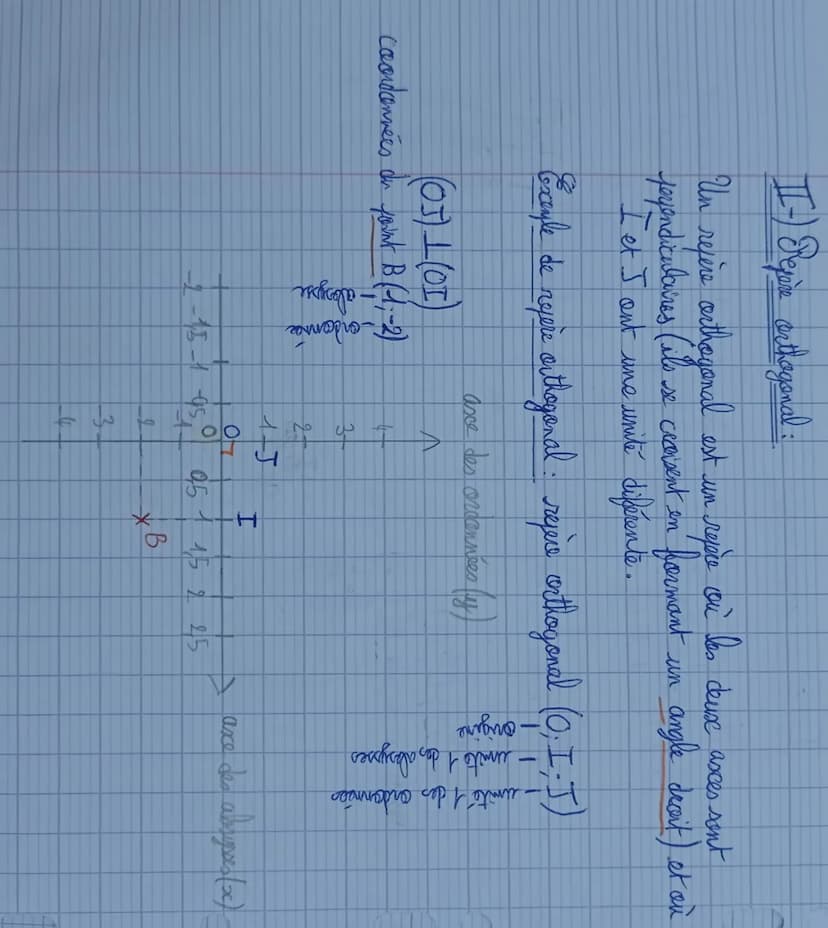 II-) Repère orthogonal:
Un repère orthogonal est un repère où les deux axes sont
perpendiculaires (ils se croisent en formant un angle droit) et où
I et J ont une unité différente.
Exemple de repère orthogonal: repère orthogonal (O; I; J)
origine
unité 1 des abscysses
unité 1 des ordonnées
axe des ordonnées (y)
(OJ) ⊥ (OI)
coordonnées du point B (1; -2)
abscysse
ordonnée
4
3
2
1 J
O I
-2 -1,5 -1 -0,5 0 0,5 1 1,5 2 2,5
axe des abscysses (x)
-1
-2 B
-3
-4